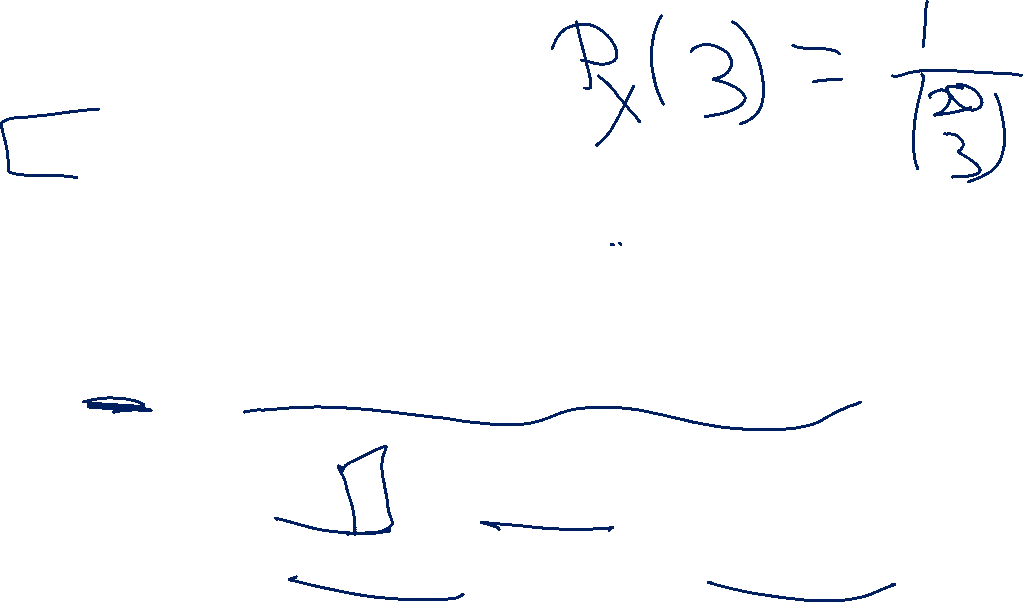 P_X(3) = 1/(20 3)